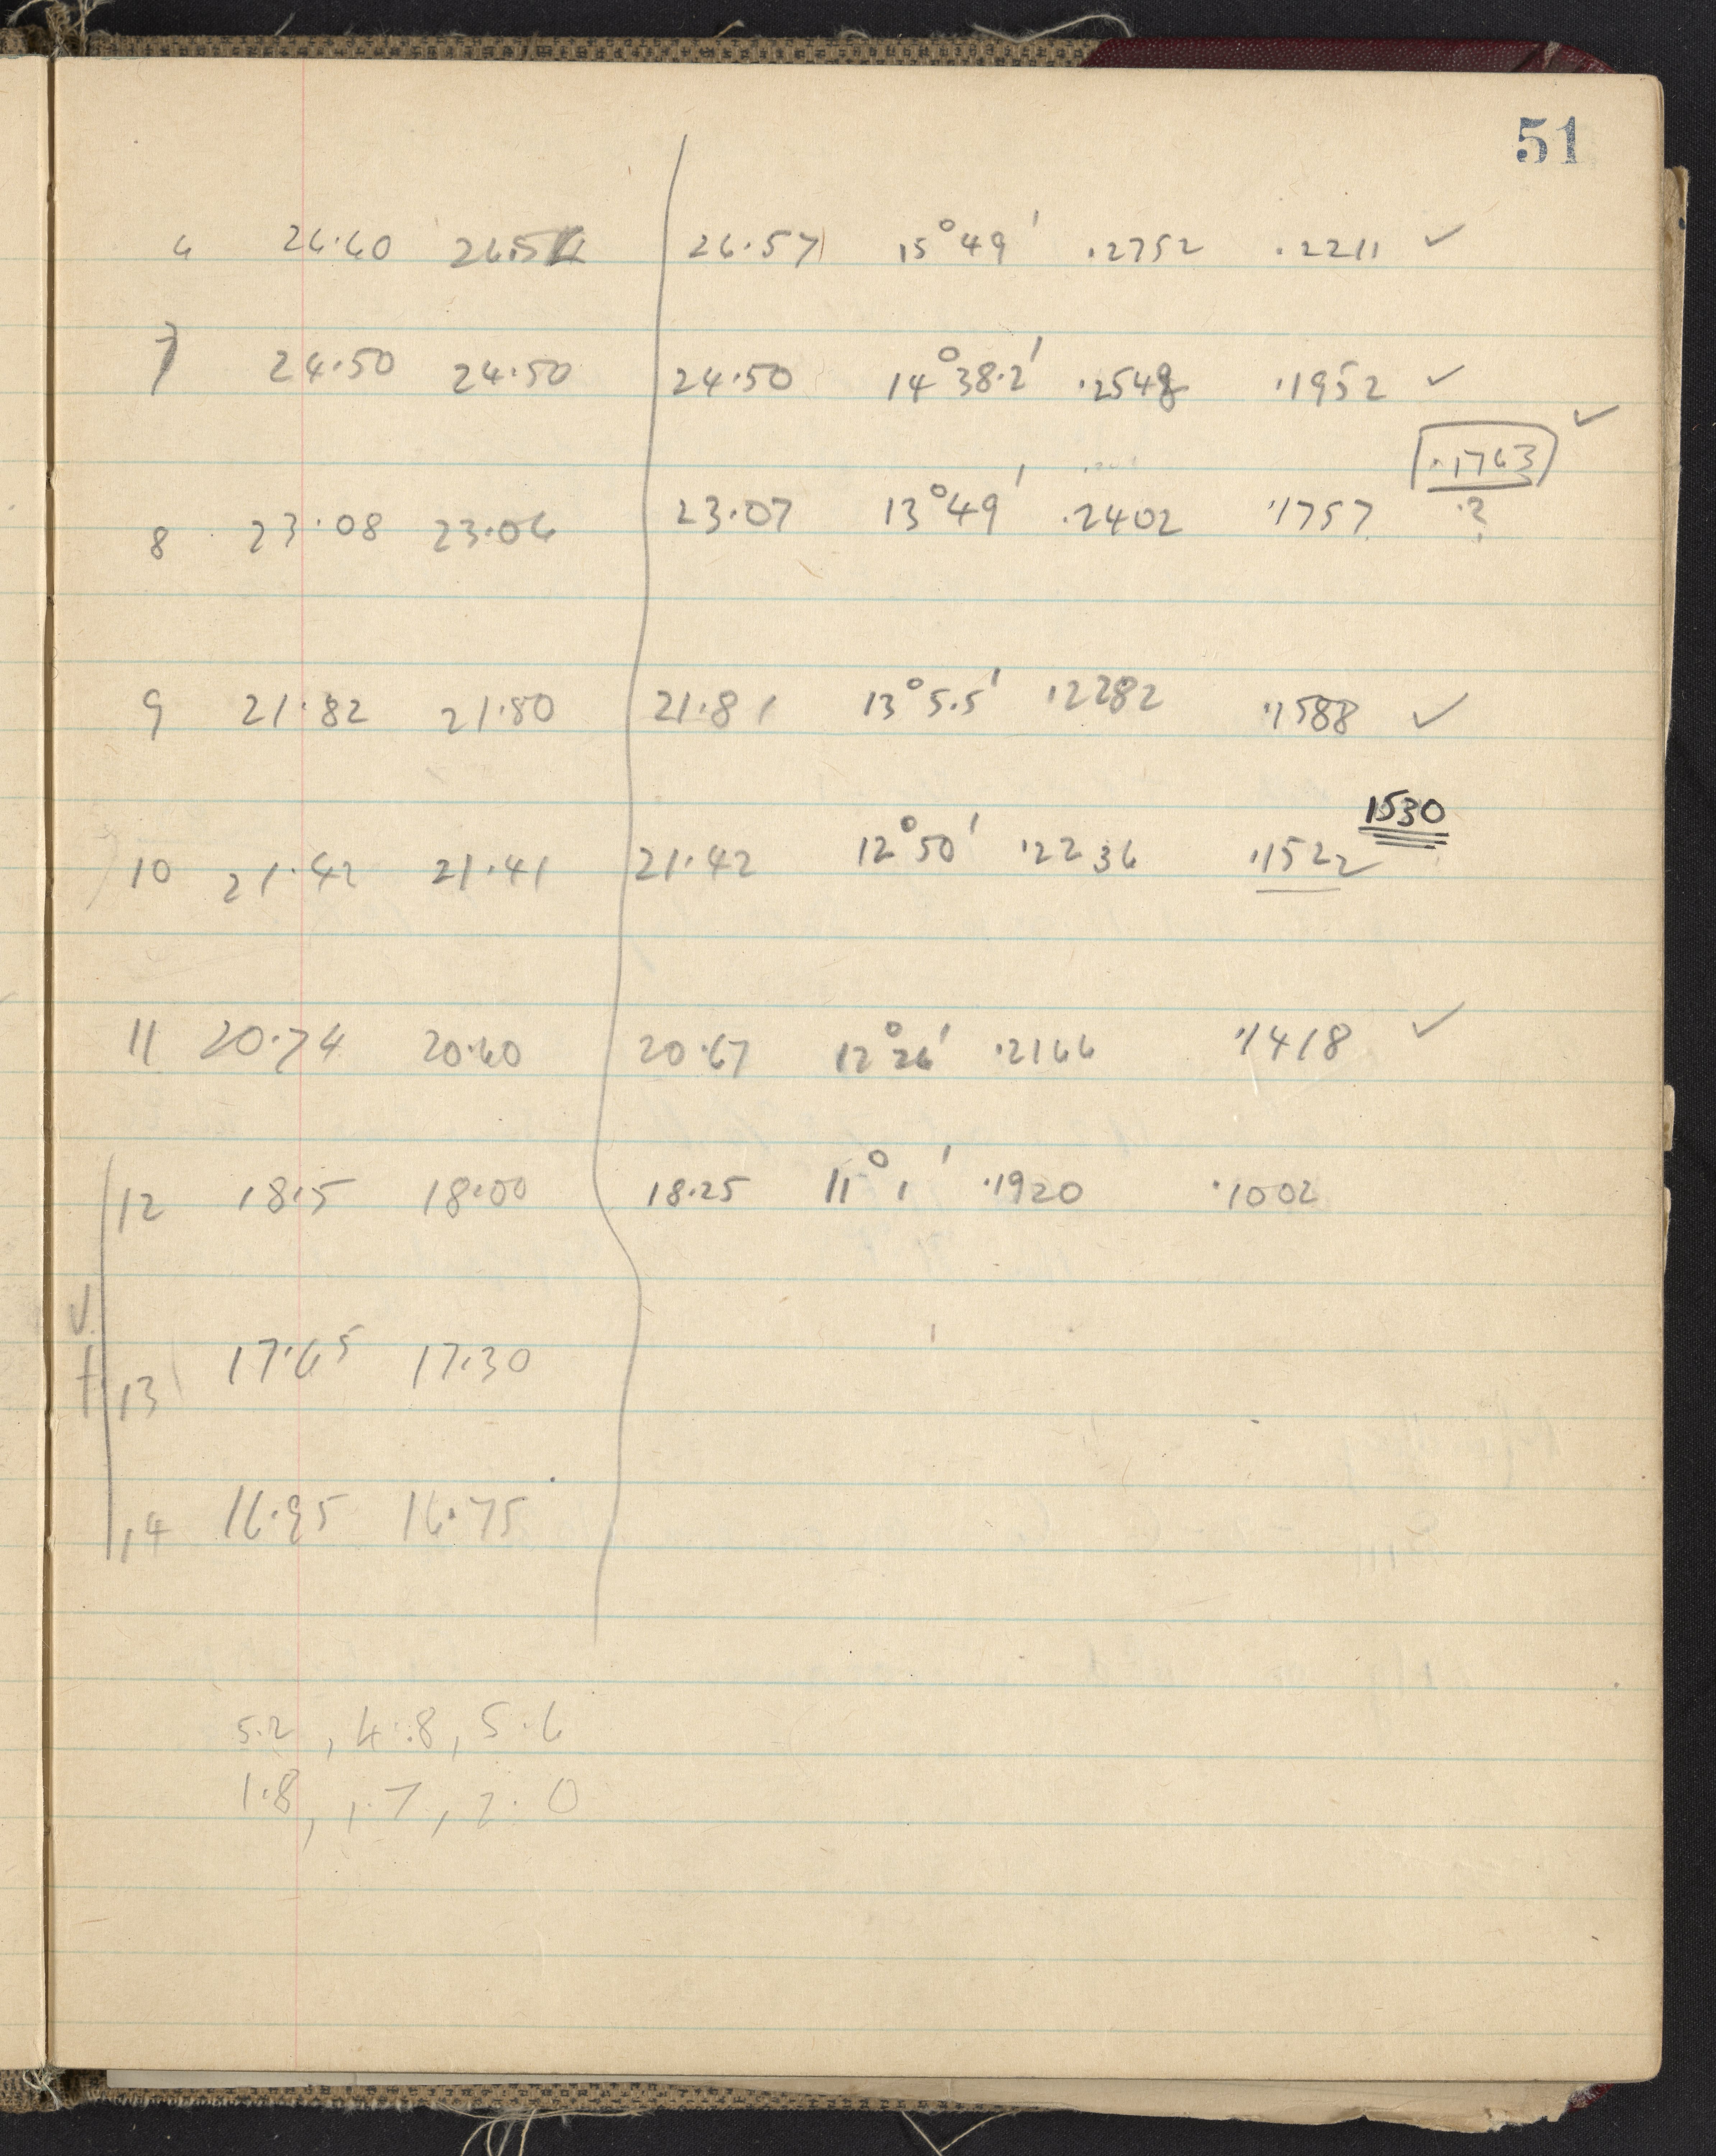 51
6 26·60 26·54 26·57 15°49' ·2752 ·2211 ✓
7 24·50 24·50 24·50 14°38·2' ·2548 ·1952 ✓
·1763 ✓
8 23·08 23·06 23·07 13°49' ·2402 ·1757 ?
9 21·82 21·80 21·81 13°5·5' ·2282 ·1588 ✓
1530
10 21·42 21·41 21·42 12°50' ·2236 ·1522
11 20·74 20·60 20·67 12°26' ·2166 ·1418 ✓
12 18·5 18·00 18·25 11°1' ·1920 ·1002
13 17·65 17·30
14 16·95 16·75
5·2, 4·8, 5·6
1·8, 1·7, 2·0